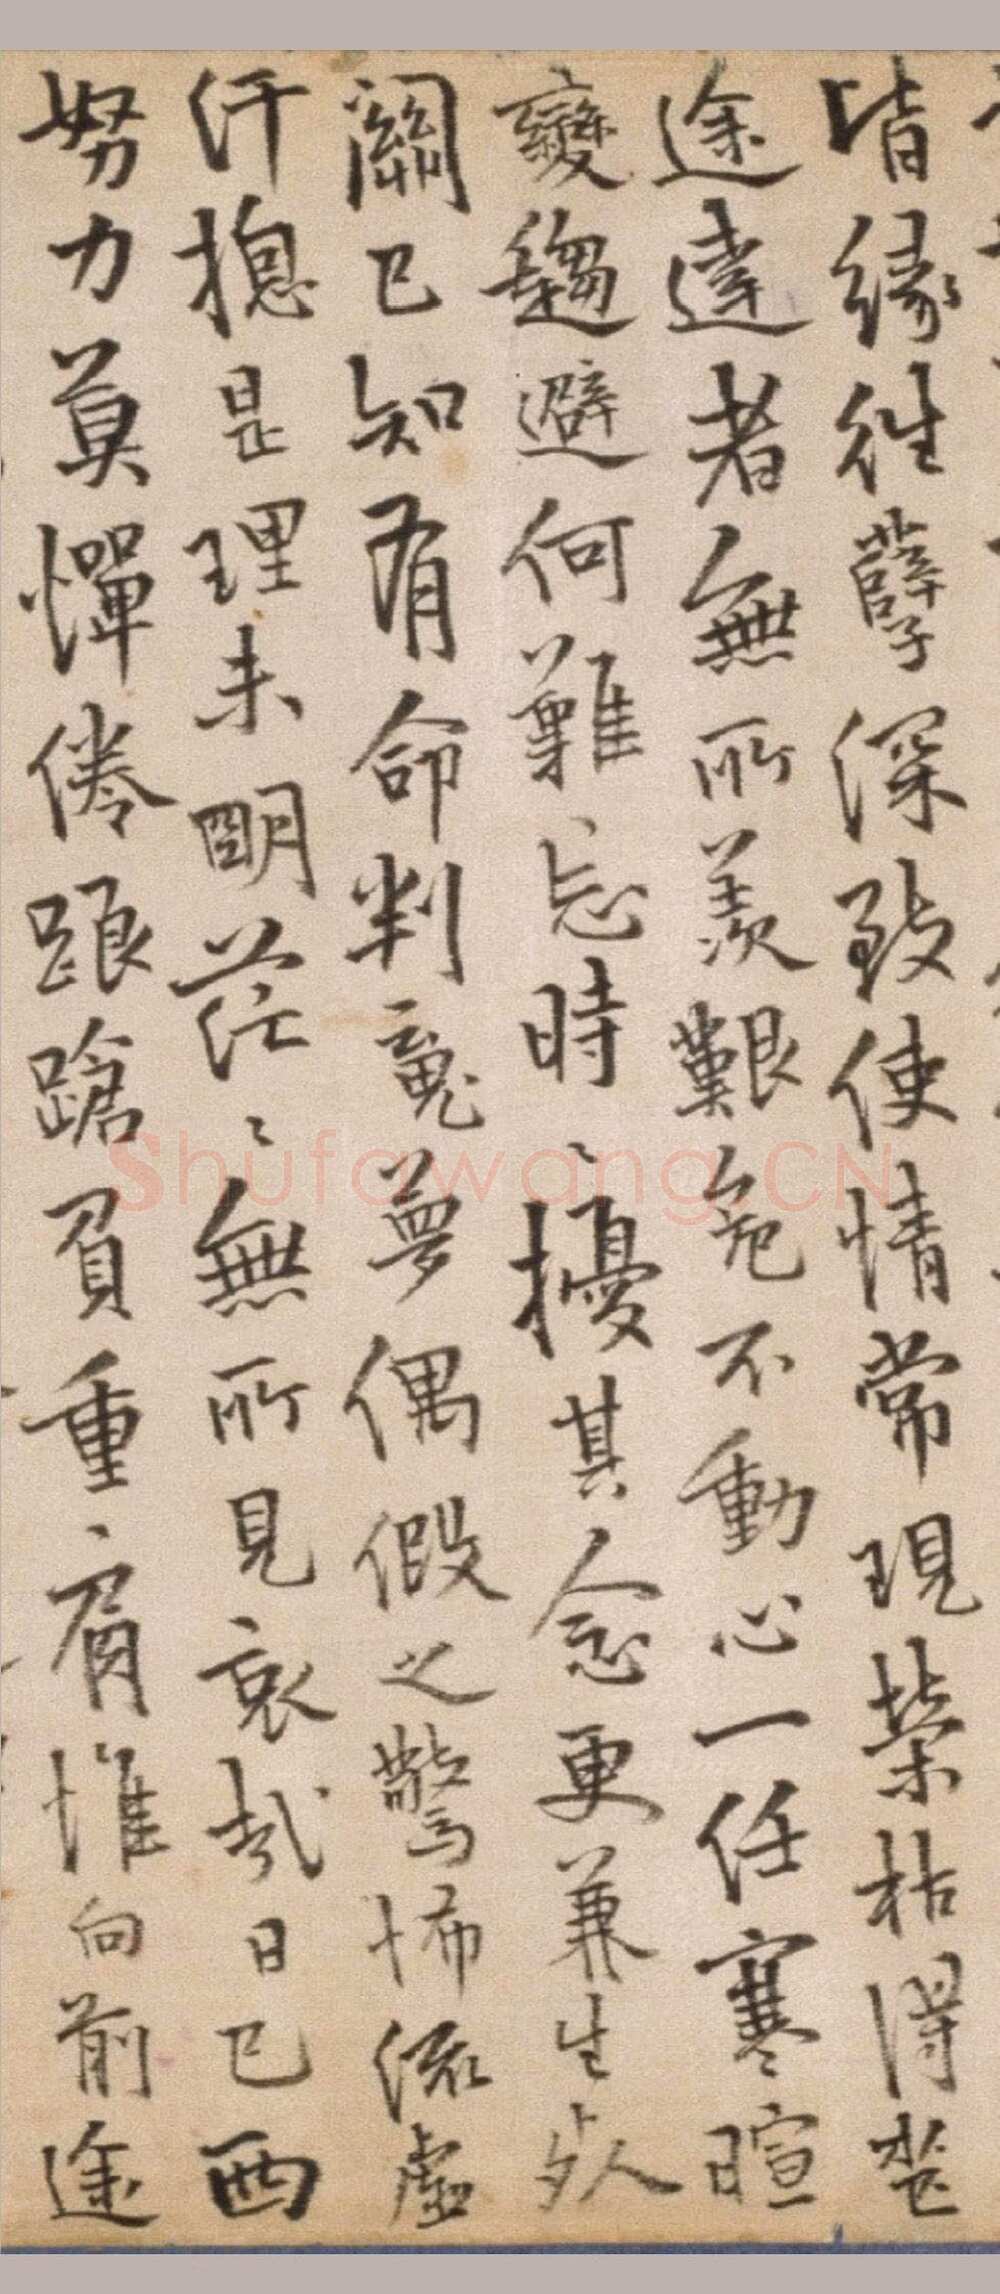 皆緣往孽深致使情常現榮枯得喪
途達者無所羨艱危不動心一任寒暄
變趨避何難忘時〻擾其念更兼生死
關已知有命判竟夢偶假之驚怖流虛
汗揔是理未明茫〻無所見哀哉日已西
努力莫憚倦踉蹌負重肩惟向前途
Shufawang.CN